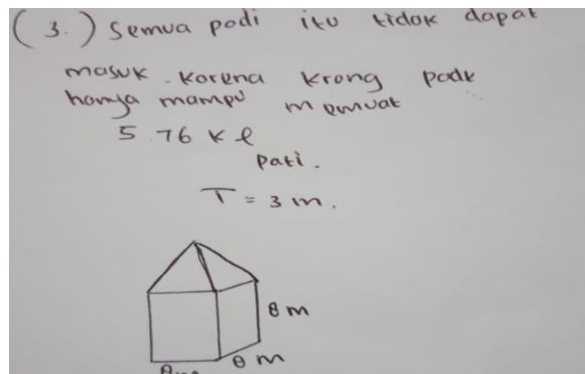 (3.) Semua padi itu tidak dapat
masuk. Karena Krong pade
hanya mampu memuat
5 76 K l
pati.
T = 3 m.
8 m
8 m
8 m